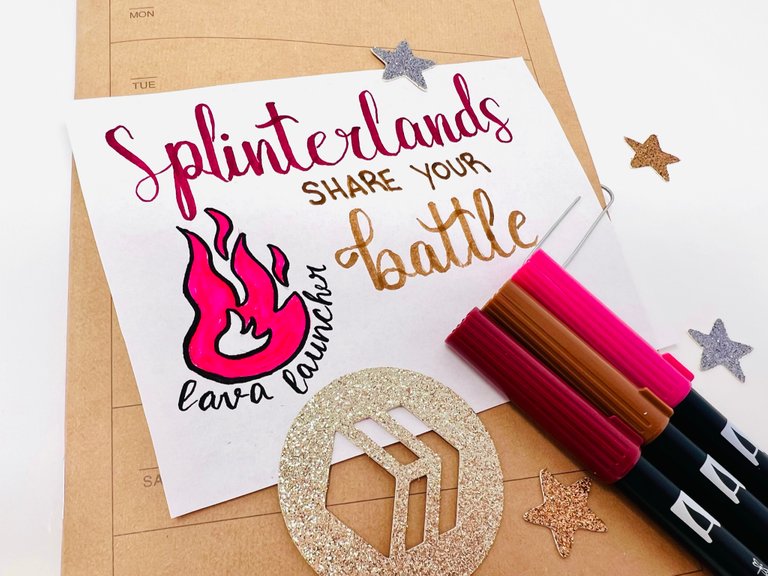 MON
TUE
Splinterlands
SHARE YOUR
battle
lava launcher
SA